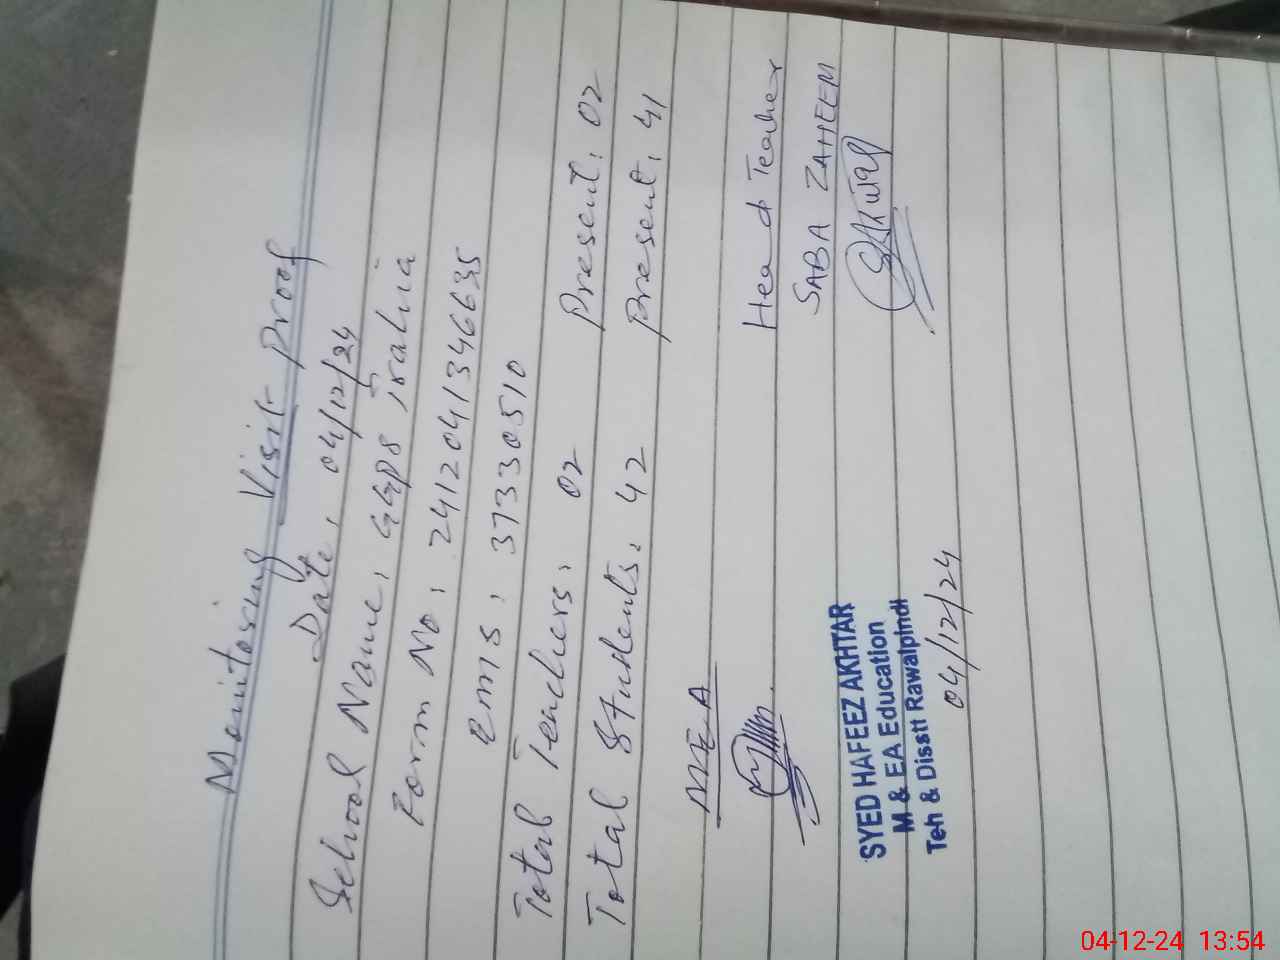 Monitoring Visit Proof
Date: 04/12/24
School Name: GGPS Jralia
Form No: 2412041346635
Emis: 37330510
Total Teachers: 02 Present: 02
Total Students: 42 Present: 41
MEA Head Teacher
SABA ZAHEEM
SYED HAFEEZ AKHTAR
M & EA Education
Teh & Disstt Rawalpindi
04/12/24
04-12-24 13:54